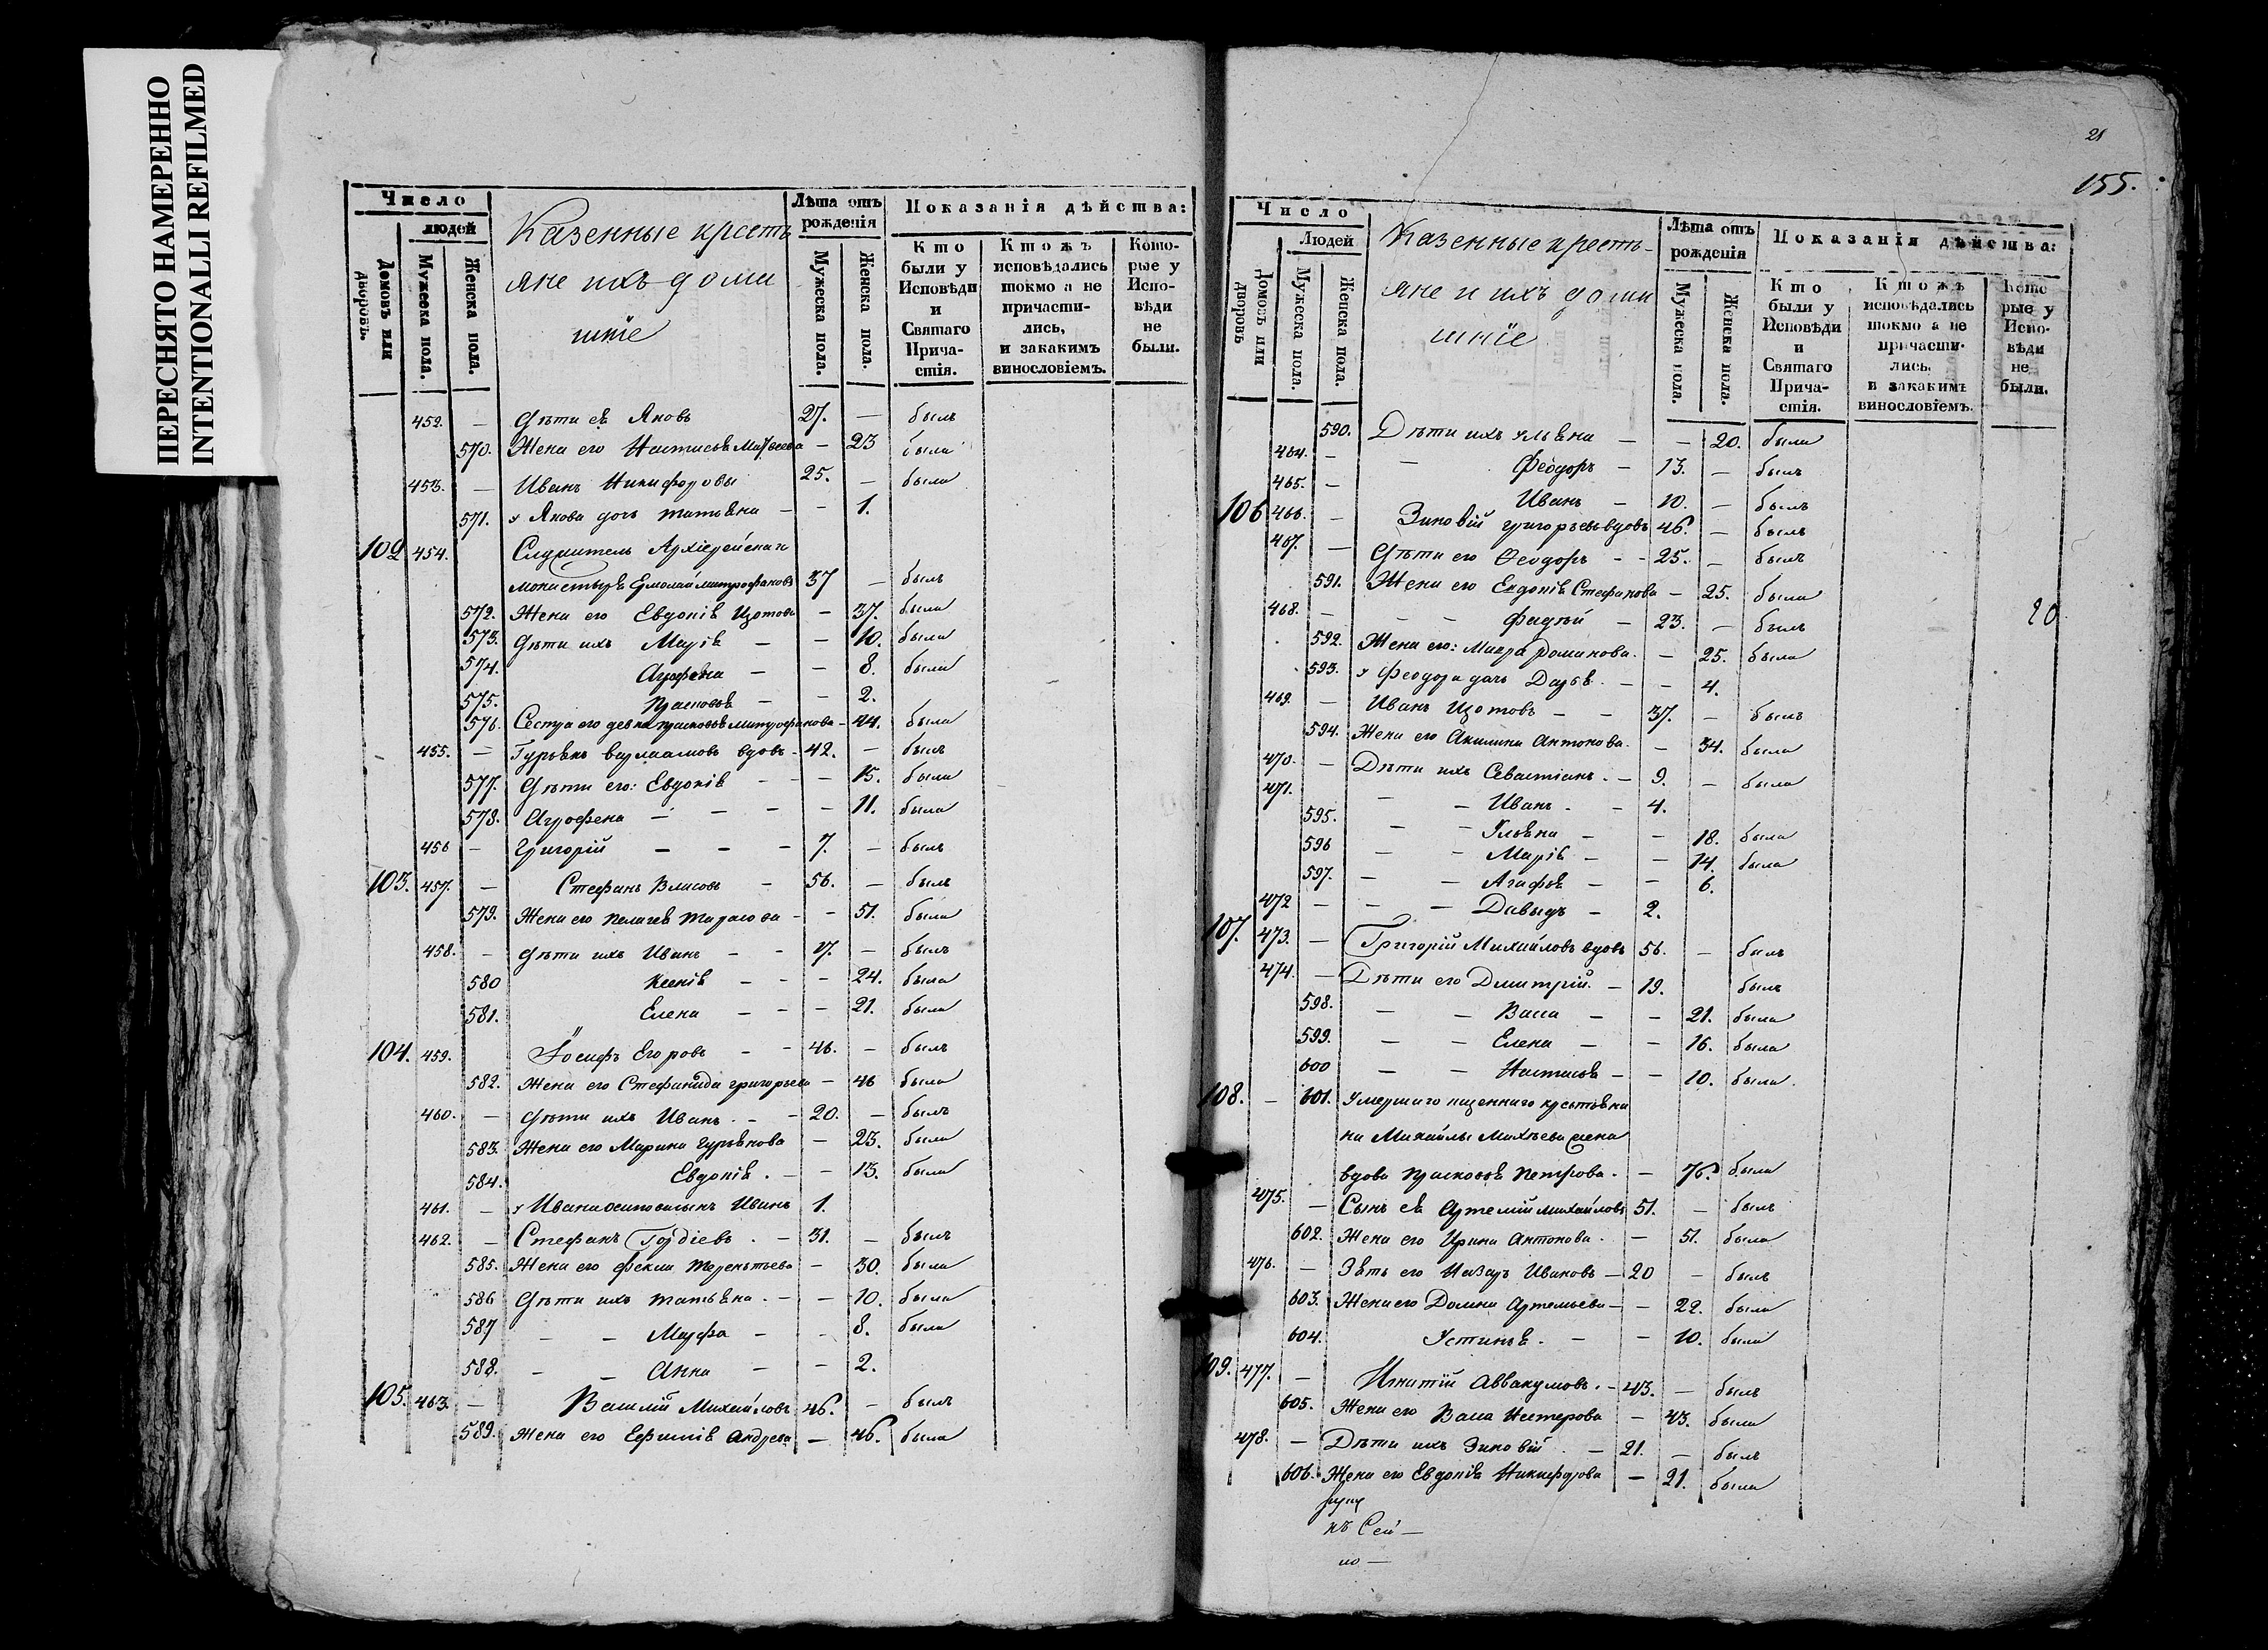 ПЕРЕСНЯТО НАМЕРЕННО
INTENTIONALLI REFILMED
Число
людей
Домовъ или дворовъ.
Мужеска пола.
Женска пола.
Казенные кресть
яне ихъ дома
шніе
Лѣта отъ рожденія
Мужеска пола.
Женска пола.
Показанія дѣйства:
Кто были у Исповѣди и Святаго Прича-стія.
Ктожъ исповѣдались токмо а не причасти-лись, и закакимъ винословіемъ.
Кото-рые у Испо-вѣди не были.
452. — Дѣти ея Яковъ 27. — былъ
570. Жена его Настасья Матвеева — 23 была
453. — Иванъ Никифоровы 25. — былъ
571. у Якова дочь Татьяна — — 1.
102 454. Служитель Архіерейскаго
монастыря Ермолай Митрофановъ 37 — былъ
572. Жена его Евдокія Изотова — 37. была
573. Дѣти ихъ Марія — — 10. была
574. Агрофена — — 8. была
575. Прасковья — — 2.
576. Сестра его девка Прасковья Митрофанова — 44. была
455. — Гурьянъ Варлаамовъ вдовъ — 42. — былъ
577. Дѣти его: Евдокія — — 15. была
578. Агрофена — — — — 11. была
456 — Григорій — — — 7. — былъ
103. 457. — Стефанъ Власовъ — 56. — былъ
579. Жена его Пелагея Тарасова — — 51. была
458. — Дѣти ихъ Иванъ — — 17. — былъ
580 Ксенія — — — 24. была
581. Елена — — — 21. была
104. 459. Іосифъ Егоровъ — — 46. — былъ
582. Жена его Стефанида Григорьева — 46 была
460. — Дѣти ихъ Иванъ. — — 20. — былъ
583. Жена его Марина Гурьянова — 23. была
584. Евдокія. — — 13. была
461. — у Ивана Осипова сынъ Иванъ 1.
462. — Стефанъ Гордіевъ. — 31. — былъ
585. Жена его Фекла Терентьева — 30. была
586 Дѣти ихъ Татьяна. — — 10. была
587 — — Марфа — — 8. была
588. — — Анна — — 2.
105. 463. — Василій Михайловъ 46. — былъ
589. Жена его Ефимія Андреева — 46. была
21
155.
Число
Людей
Домовъ или дворовъ
Мужеска пола.
Женска пола.
Казенные кресть-
яне и ихъ дома
шніе
Лѣта отъ рожденія
Мужеска пола.
Женска пола.
Показанія дѣйства:
Кто были у Исповѣди и Святаго Прича-стія.
Ктожъ исповѣдались токмо а не причасти-лись, и закакимъ винословіемъ.
Кото рые у Испо-вѣди не были.
590. Дѣти ихъ Ульяна — — 20. была
464. — — Феодоръ — 13. — былъ
465. — Иванъ — 10. — былъ
106 466. — Зиновій Григорьевъ вдовъ 46. — былъ
467. — Дѣти его Ѳеодоръ — — 25. — былъ
591. Жена его Евдокія Стефанова — 25. была
468. — — — Фадѣй — 23. — былъ
20
592. Жена его: Мавра Романова. — 25. была
593. у Феодора дочь Дарья. — — 4.
469. — Иванъ Изотовъ — — 37. — былъ
594. Жена его Акилина Антонова. — 34. была
470. — Дѣти ихъ Севастіанъ. — 9. — была
471. — — Иванъ. — 4.
595. — — Ульяна — — 18. была
596 — — Марія — — 14. была
597. — — Агафья — — 6.
472 — — — Давыдъ — 2.
107. 473. — Григорій Михайловъ вдовъ 56. — былъ
474. — Дѣти его Дмитрій. — 19. былъ
598. — — Васса — — 21. была
599. — — Елена — — 16. была
600 — — Настасья — — 10. была.
108. — 601. Умершаго казеннаго крестьяни
на Михайлы Михѣева жена
вдова Прасковья Петрова. — 76. была
475. — Сынъ ея Артемій Михайловъ 51. — былъ
602. Жена его Ирина Антонова. — 51. была
476. — Зять его Назаръ Ивановъ — 20 — былъ
603. Жена его Домна Артемьева — — 22. была
604. Устинья. — — 10. была
109. 477. — Игнатій Аввакумовъ. — 43. — былъ
605. Жена его Васса Нестерова — 43. была
478. — Дѣти ихъ Зиновій. — 21. — былъ
606. Жена его Евдокія Никифорова — 21. была
къ Сей —